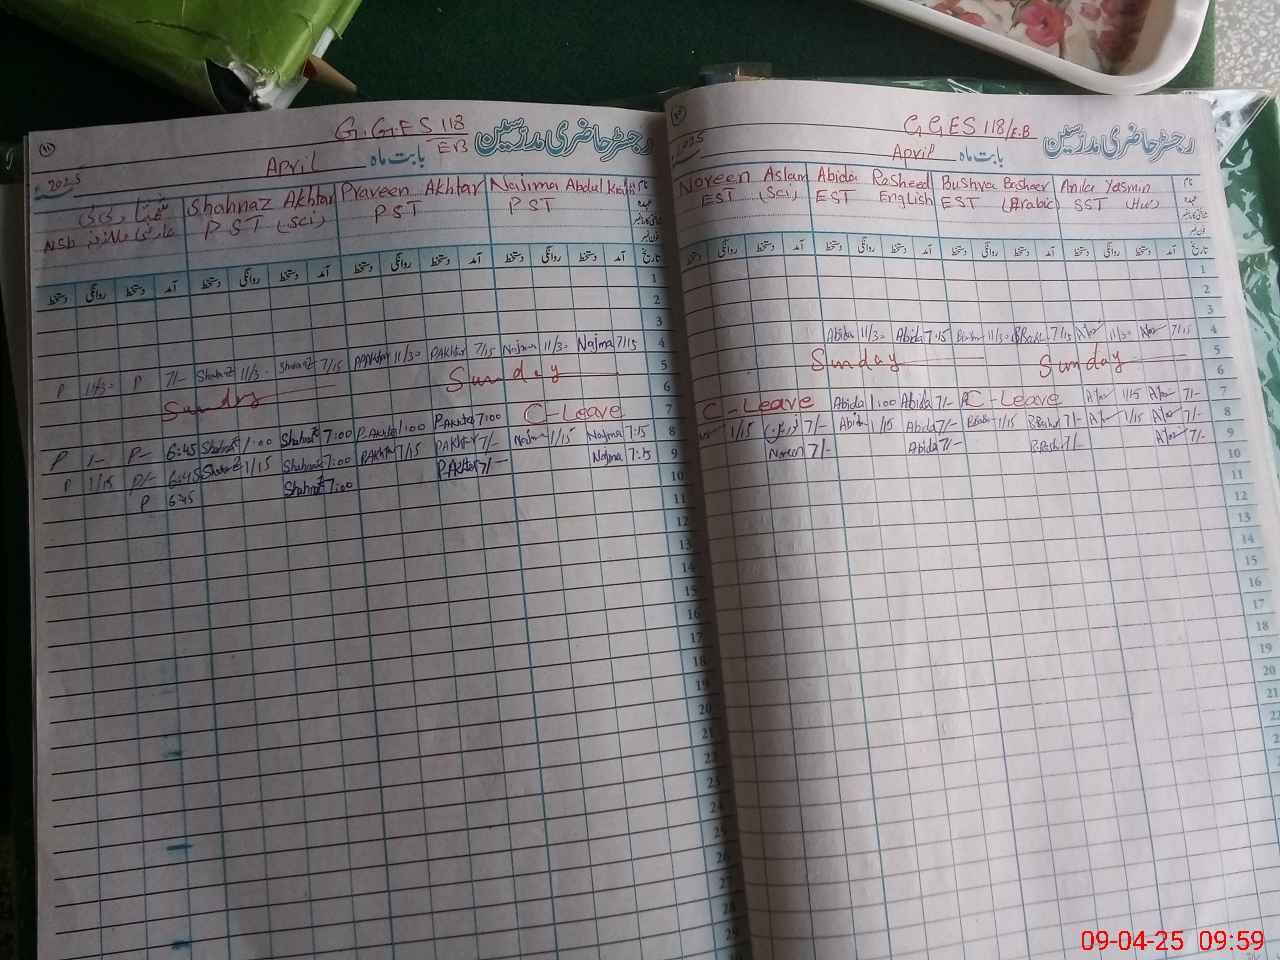 G.G.ES 118
E B
رجسٹر حاضری مدرسین
بابت ماہ April
2025
Shahnaz Akhtar Praveen Akhtar Najma Abdul
NSB PST (Sci) PST PST
دستخط روانگی دستخط آمد دستخط روانگی دستخط آمد دستخط روانگی دستخط آمد دستخط روانگی دستخط آمد تاریخ
1
2
3
P 11/30 P 7/- Shahnaz 11/30 Shahnaz 7/15 P.Akhtar 11/30 P.Akhtar 7/15 Najma 11/30 Najma 7/15 4
5
Sunday Sunday 6
C-Leave 7
P 1/- P- 6:45 Shahnaz 1:00 Shahnaz 7:00 P.Akhtar 1:00 P.Akhtar 7:00
P 1/15 P/- 6:45 Shahnaz 1/15 Shahnaz 7:00 P.Akhtar 1/15 P.Akhtar 7/- Najma 1/15 Najma 7:15 8
P 6:45 Shahnaz 7:00 P.Akhtar 7/- Najma 7:15 9
10
11
12
13
14
15
16
17
18
19
20
21
22
23
24
25
26
27
28
29
GGES 118/E.B
رجسٹر حاضری مدرسین
بابت ماہ April
2025
Noreen Aslam Abida Rasheed Bushra Basheer Anila Yasmin
EST (Sci) EST English EST (Arabic) SST (Hu)
دستخط روانگی دستخط آمد دستخط روانگی دستخط آمد دستخط روانگی دستخط آمد دستخط روانگی دستخط آمد تاریخ
1
2
3
Abida 11/30 Abida 7:15 11/30 7/15 11/30 7/15 4
5
Sunday Sunday 6
C-Leave Abida 1:00 Abida 7/- C-Leave 1/15 7/- 7
1/15 نورین 7/- Abida 1/15 Abida 7/- 1/15 B.Bashir 7/- 1/15 7/- 8
Noreen 7/- Abida 7/- B.Bashir 7/- 7/- 9
10
11
12
13
14
15
16
17
18
19
20
21
09-04-25 09:59